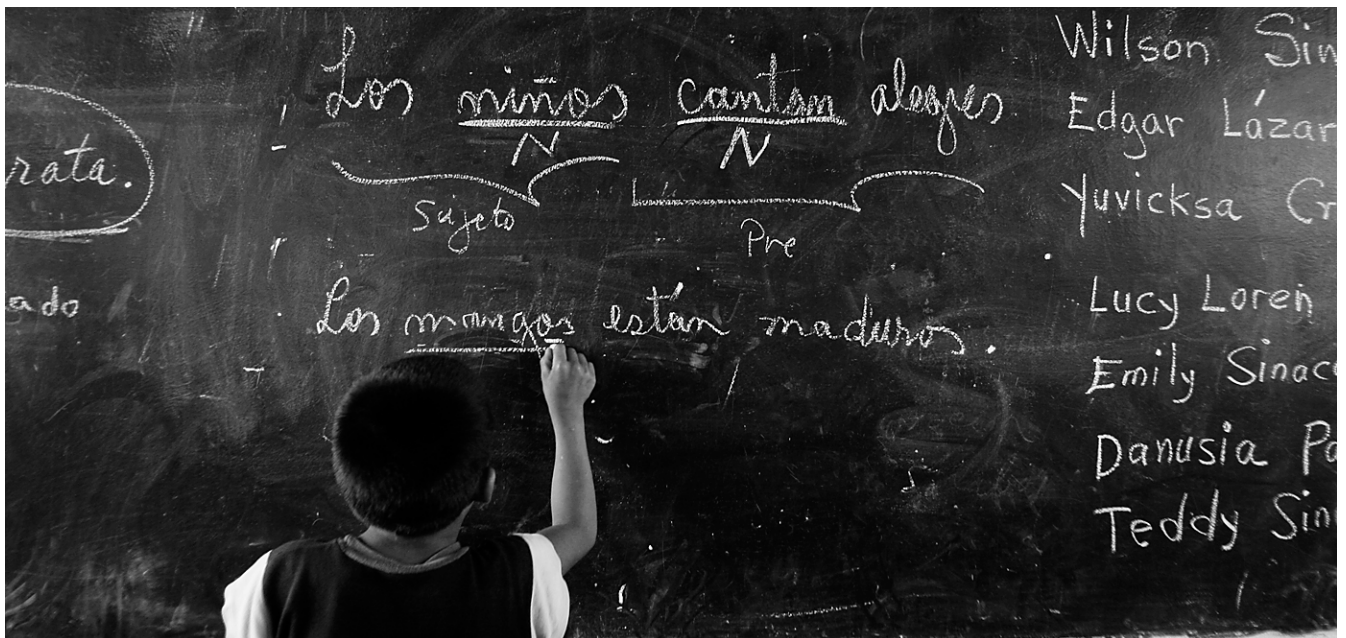 rata.
ado
Los niños cantan alegres
N N
Sujeto Pre
Los mangos están maduros.
Wilson Sin
Edgar Lázar
Yuvicksa Gr
Lucy Loren
Emily Sinac
Danusia Pa
Teddy Sin